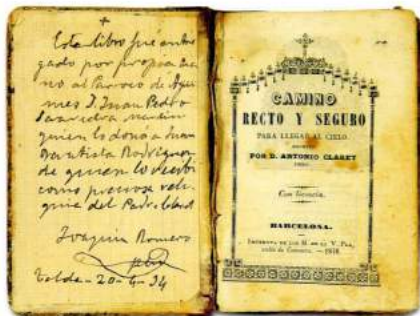 +
Este libro fué entre
gado por propia ma
no al Parroco de Agüi
mes D. Juan Pedro
Saavedra
quien lo donó a Juan
Bautista Rodriguez
de quien lo recibí
como preciosa reli
quia del Padre Claret
Joaquin Romero
Telde-20-4-34
CAMINO
RECTO Y SEGURO
PARA LLEGAR AL CIELO
POR D. ANTONIO CLARET
Con licencia.
BARCELONA.
IMPRENTA DE LOS H. DE LA V. PLA,
calle de Cotoners.